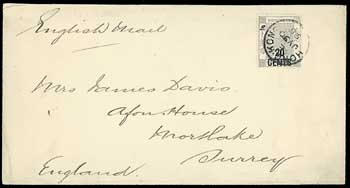 English Mail
20
CENTS
Mrs James Davis.
Afon House
Mortlake
Surrey
England.